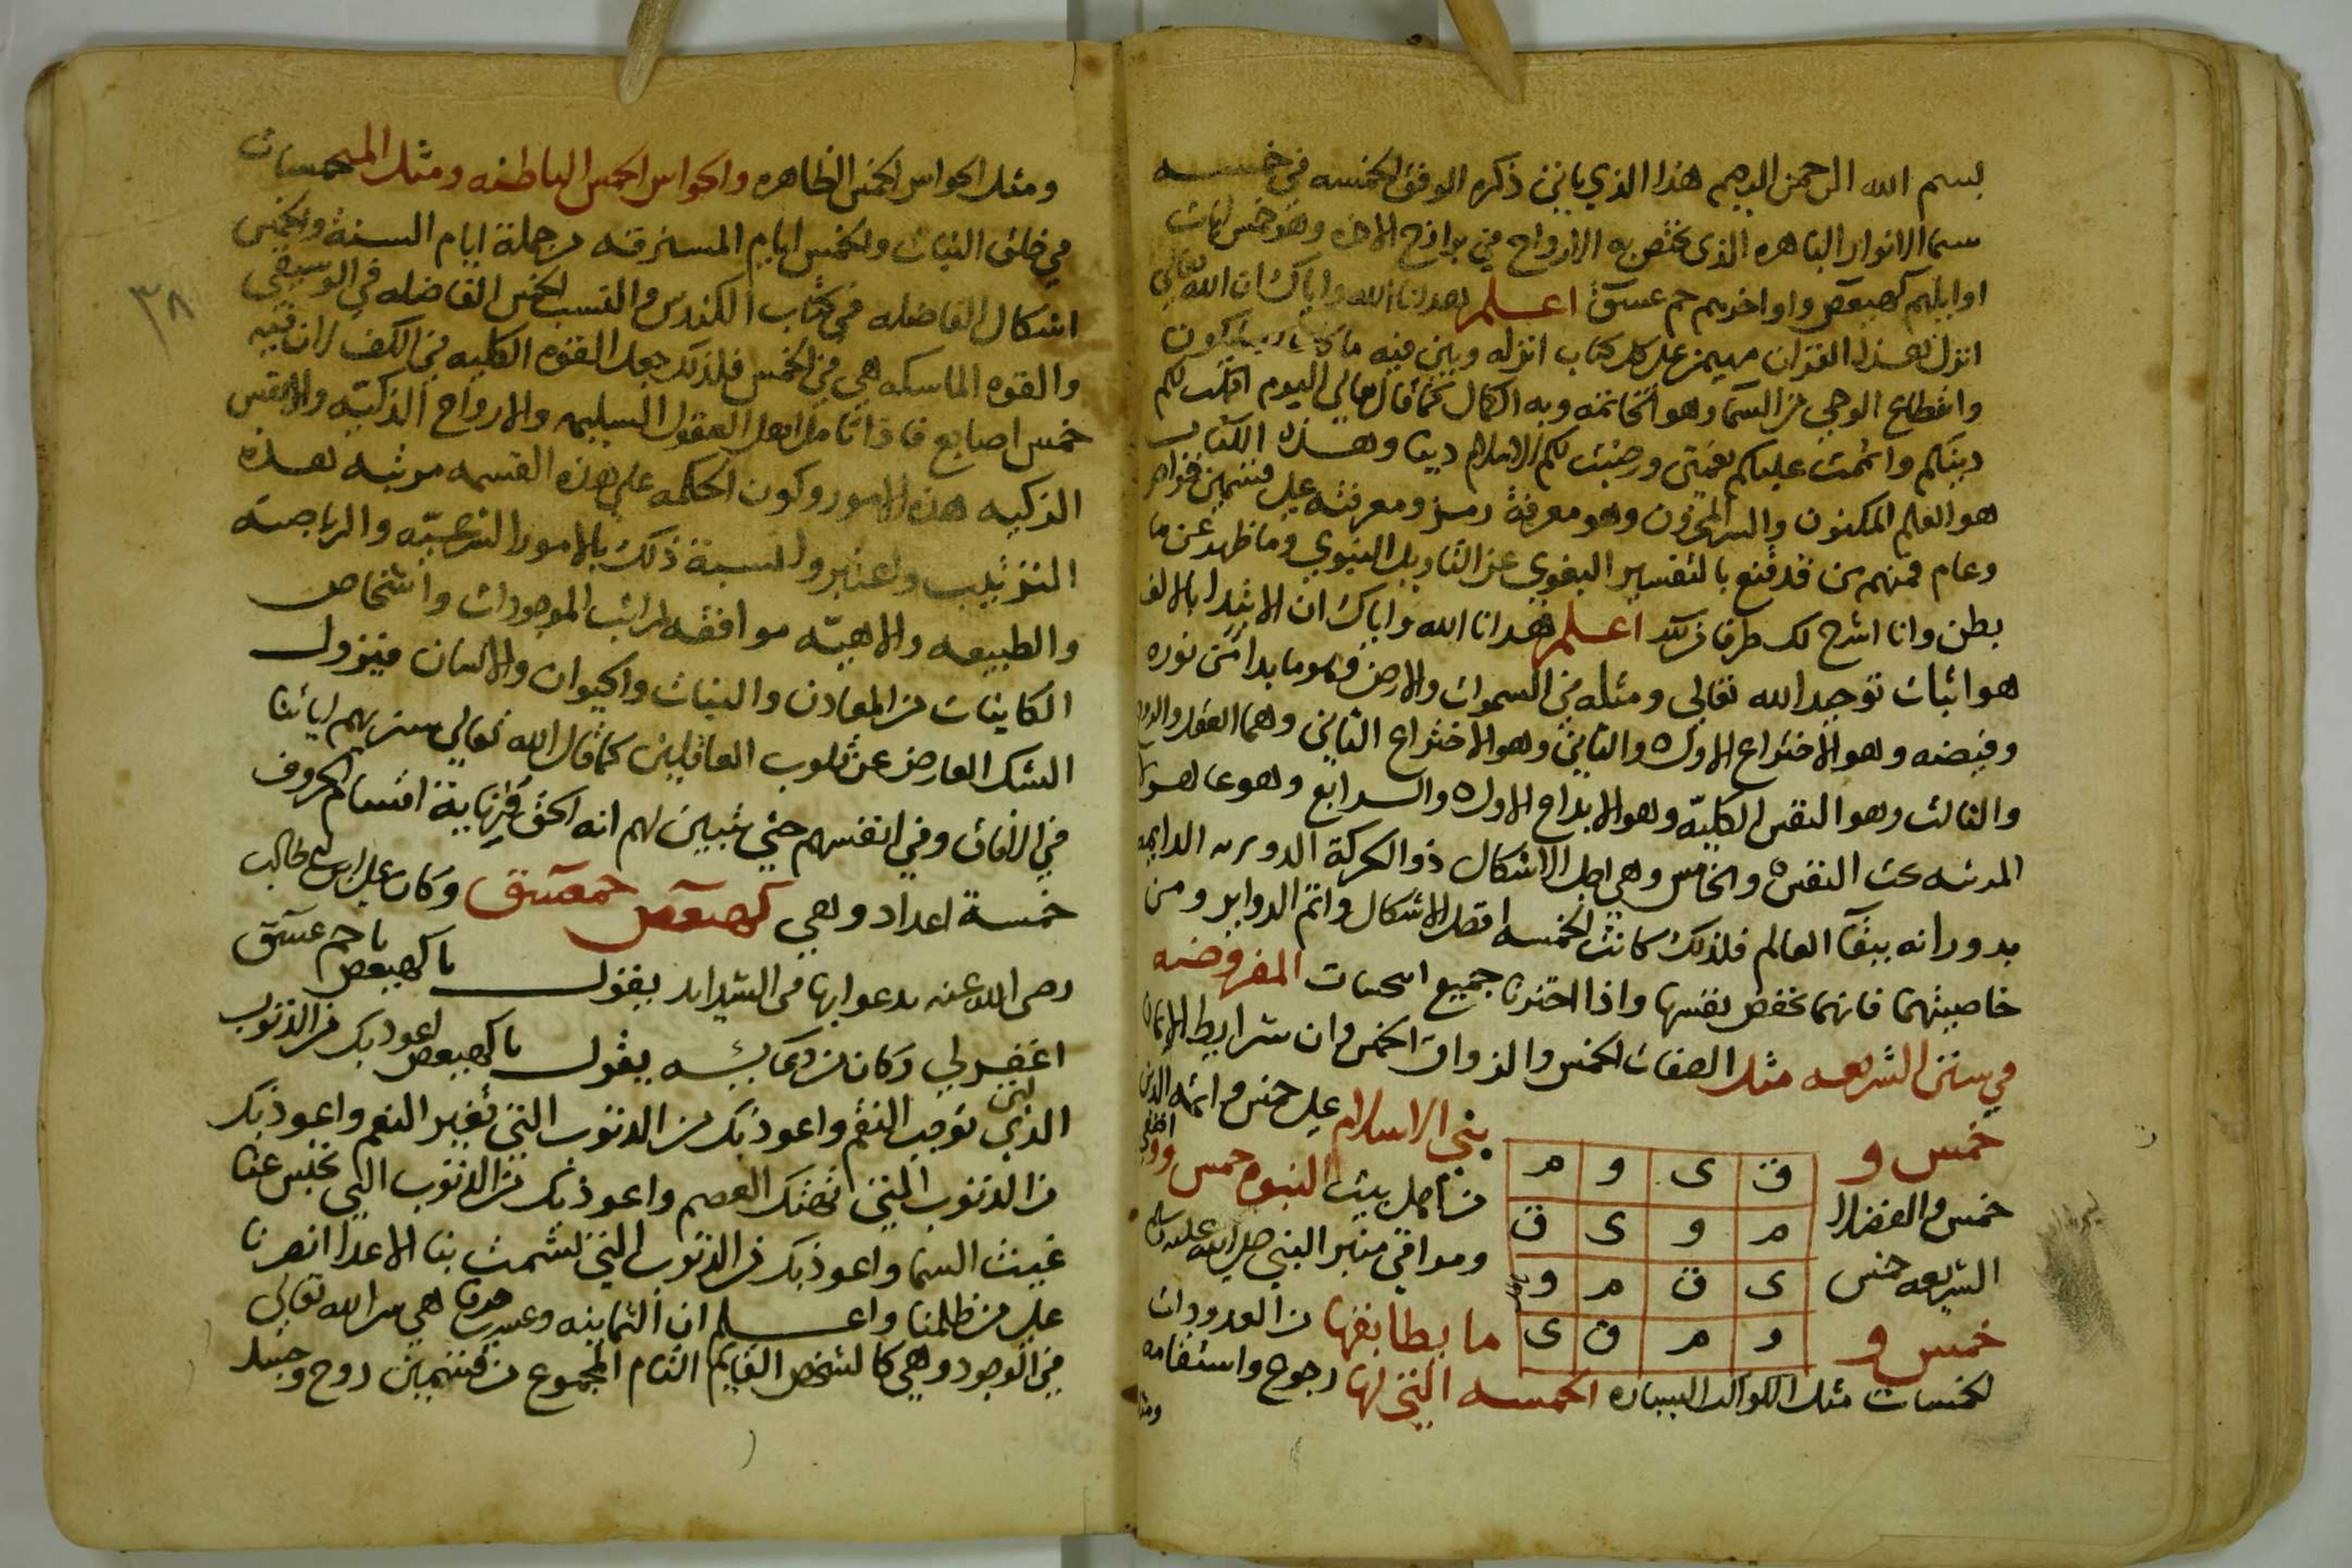 بسم الله الرحمن الرحيم هذا الذي ياتي ذكره الوفق الخمسه في خمسه
سما الانوار الباهره الذى تختص به الارواح في برازخ الاخره وهو خمس ايات
اوايلهم كهيعص واواخرهم حم عسق اعلم هدانا الله واياك ان الله تعالى
انزل هذا القران مهيمن على كل كتاب انزله وبين فيه ما كان وسيكون
وانقطاع الوحي من السما وهو الخاتمه وبه الكمال كما قال تعالى اليوم اكملت لكم
دينكم واتممت عليكم نعمتي ورضيت لكم الاسلام دينا وهذا الكتاب
هو العلم المكنون والسر المخزون وهو معرفة رمز ومعرفته على قسمين خواص
وعام فمنهم من قد قنع بالتفسير اللغوي عن التاويل النبوي وما ظهر عن ما
بطن وانا اشرح لك طرفا من ذلك اعلم هدانا الله واياك ان الابتدا بالالف
هو اثبات توحيد الله تعالى ومثله في السموات والارض وهو ما بدا من نوره
وفيضه وهو الاختراع الاول ه والثاني وهو الاختراع الثاني وهما العقل والروح
والثالث وهو النفس الكليه وهو الابداع الاول ه والرابع وهو عالم
تحت النفس ه والخامس وهي اجل الاشكال ذو الحركة الدوريه الدايمه
بدورانه ببقآ العالم فلذلك كانت الخمسه افضل الاشكال واتم الدواير ومن
خاصيتهما فانهما تحفض نفسها واذا اختبرنا جميع الخمسات المفروضه
في سنن الشريعه مثل الصفات الخمس والذوات الخمس وان شرايط الايمان
خمس و بني الاسلام على خمس وايمة الدين
ق ى و م
خمس والفضلا من اهل بيت النبوه خمس واولي
م و ى ق
الشريعه خمس ومواقي منبر النبي صلى الله عليه وسلم
ى ق م و
خمس و ما يطابقها من المعدودات
و م ق ى
الخمسات مثل الكواكب السياره الخمسه التي لها رجوع واستقامه
ومثل
ومثل الحواس الخمس الظاهره والحواس الخمس الباطنه ومثل المخمسات
في خلق النبات والخمس ايام المسترقه من جملة ايام السنة والخمس
اشكال الفاضله في كتاب اقليدس والنسب الخمس الفاضله في الموسيقى
٣٨
والقوه الماسكه هي في الخمس فلذلك جعل القوه الكليه في الكف لان فيه
خمس اصابع فاذا تامل اهل العقول السليمه والارواح الذكيه والانفس
الزكيه هذه الامور وكون الحكمه على هذه القسمه مرتبه لهذه
الترتيب واعتبروا نسبة ذلك بالامور الشرعيه والرياضيه
والطبيعه والالاهيه موافقه لمراتب الموجودات واشخاص
الكاينات من المعادن والنبات والحيوان والانسان فيزول
الشك العارض عن قلوب الغافلين كما قال الله تعالى سنريهم اياتنا
في الافاق وفي انفسهم حتى يتبين لهم انه الحق فنهاية اقسام الحروف
خمسة اعداد وهي كهيعص حمعسق وكان علي ابن ابي طالب
رضى الله عنه يدعوا بها في الشدايد يقول يا كهيعص يا حم عسق
اغفر لي وكان من دعايه يقول يا كهيعص اعوذ بك من الذنوب
التي توجب النقم واعوذ بك من الذنوب التي تغير النعم واعوذ بك
من الذنوب التي تهتك العصم واعوذ بك من الذنوب التي تحبس عنا
غيث السما واعوذ بك من الذنوب التي تشمت بنا الاعدا انصرنا
على من ظلمنا واعلم ان الثمانيه وعشرين حرفا هي سر الله تعالى
في الوجود وهي كالشخص القايم التام المجموع من قسمين روح وجسد